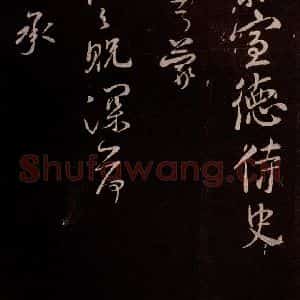 宣德侍史
蒙
貺深荷
承
Shufawang.cn